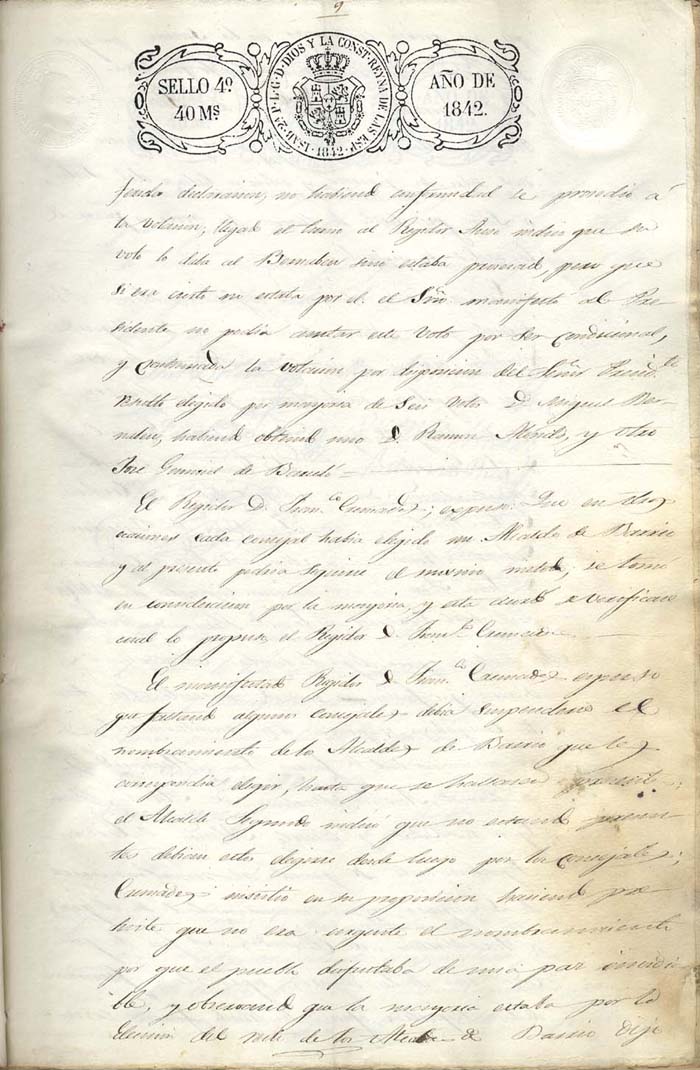 9
SELLO 4º
40 Ms
ISAB. 2ª P. L. G. D. DIOS Y LA CONST. REYNA DE LAS ESP.
1842
AÑO DE
1842.
declaracion, no habiendo conformidad se procedio á
la votacion, llegado el turno al Regidor indicó que su
voto lo daba al si no estaba procesado, pero que
si era cierto no estaba por el. el Sor. manifesto al Pre-
sidente no podia admitir este voto por ser condicional,
y continuada la votacion por disposicion del Señor Presidte.
resultó elegido por mayoria de seis votos D. Miguel
habiendo obtenido uno D. Ramon y otro
José de
El Regidor D. Franco. expuso: Que en otras
ocasiones cada concejal habia elegido un Alcalde de Barrio
y al presente podria seguirse el mismo metodo, se tomó
en consideracion por la mayoria, y esta acordó se verificase
cual lo propuso el Regidor D. Franco.
El manifestado Regidor D. Franco. expuso
que faltando algunos concejales debia suspenderse el
nombramiento de los Alcaldes de Barrio que les
correspondia elegir, hasta que se hallasen presentes;
el Alcalde Segundo indicó que no estando presen-
tes debian estos elegirse desde luego por los concejales;
insistió en su proposicion haciendo pre-
sente que no era urgente el nombramiento
por que el pueblo disfrutaba de una paz
ble, y observando que la mayoria estaba por la
eleccion del resto de los Alcaldes de Barrio dijo